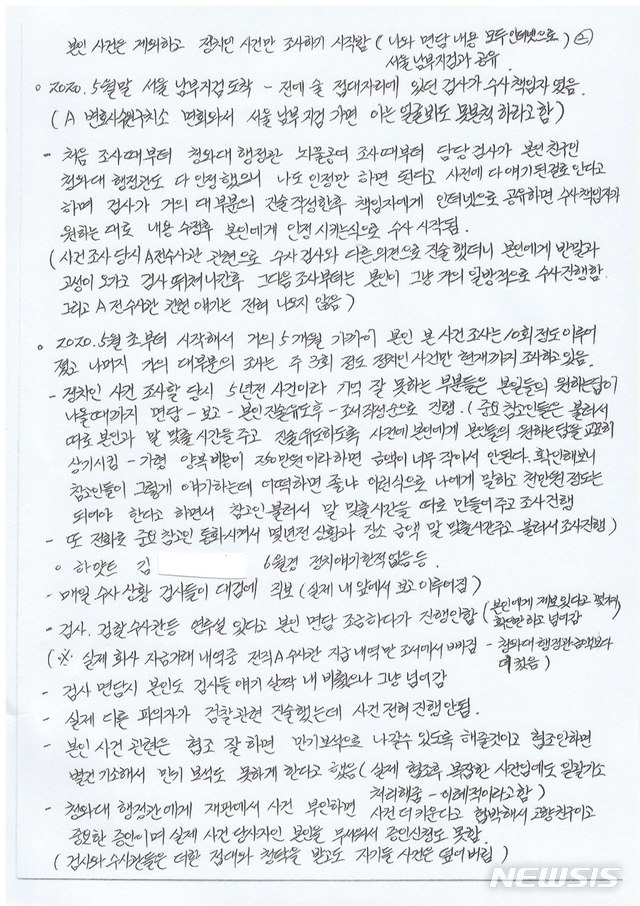 본인 사건은 제외하고 정치인 사건만 조사하기 시작함 (나와 면담 내용 모두 인터넷으로) ②
서울 남부지검과 공유
○ 2020. 5월말 서울 남부지검 도착 - 전에 술 접대자리에 있던 검사가 수사 책임자 였음.
(A 변호사 수원구치소 면회와서 서울 남부지검 가면 아는 얼굴봐도 못본척 하라고함)
- 처음 조사때부터 청와대 행정관 뇌물공여 조사때부터 담당 검사가 본인 친구인
청와대 행정관도 다 인정 했으니 나도 인정만 하면 된다고 사전에 다 얘기 된걸로 안다고
하며 검사가 거의 대부분의 진술 작성한후 책임자에게 인터넷으로 공유하면 수사 책임자가
원하는 대로 내용 수정후 본인에게 인정 시키는식으로 수사 시작됨.
(사건 조사 당시 A전수사관 관련으로 수사 검사와 다른 의견으로 진술 했더니 본인에게 반말과
고성이 오가고 검사 뛰쳐 나간후 그다음 조사부터는 본인이 그냥 거의 일방적으로 수사 진행함.
그리고 A 전수사관 관련 얘기는 전혀 나오지 않음)
○ 2020. 5월 초부터 시작해서 거의 5개월 가까이 본인 본 사건 조사는 10회 정도 이루어
졌고 나머지 거의 대부분의 조사는 주 3회 정도 정치인 사건만 현재까지 조사하고 있음.
- 정치인 사건 조사할 당시 5년전 사건이라 기억 잘 못하는 부분들은 본인들의 원하는 답이
나올때까지 면담 - 보고 - 본인 진술유도후 - 조서 작성 순으로 진행. (중요 참고인들은 불러서
따로 본인과 말 맞출 시간을 주고 진술유도하도록 사전에 본인에게 본인들의 원하는 답을 교묘히
상기시킴 - 가령 양복 비용이 250만원 이라하면 금액이 너무 작아서 안된다. 확인해보니
참고인들이 그렇게 얘기하는데 어떡하면 좋냐 이런식으로 나에게 말하고 천만원 정도는
되어야 한다고 하면서 참고인 불러서 말 맞출시간을 따로 만들어 주고 조사 진행
- 또 전화로 중요 참고인 통화시켜서 몇년전 상황과 장소 금액 말 맞출시간주고 불러서 조사진행)
○ 하얏트 김 6월경 정치얘기한적 없음 등.
- 매일 수사 상황 검사들이 대검에 직보 (실제 내 앞에서 보고 이루어짐)
- 검사. 검찰 수사관등 연루설 있다고 본인 면담 조금하다가 진행안함 (본인에게 제보 있다고
확인만 하고 넘어감
(※ 실제 회사 자금거래 내역중 전직 A 수사관 지급 내역만 조서에서 빠짐 - 청와대 행정관 금액보다
더 컸음)
- 검사 면담시 본인도 검사들 얘기 살짝 내 비췄으나 그냥 넘어감
- 실제 다른 피의자가 검찰관련 진술했는데 사건 전혀 진행 안됨.
- 본인 사건 관련은 협조 잘 하면 만기보석으로 나갈수 있도록 해줄것이고 협조 안하면
별건 기소해서 만기 보석도 못하게 한다고 했음 (실제 협조후 복잡한 사건임에도 일괄기소
처리해줌 - 이례적이라고 함)
- 청와대 행정관에게 재판에서 사건 부인하면 사건 더 키운다고 협박해서 고향친구이고
중요한 증인이며 실제 사건 당사자인 본인을 무서워서 증인신청도 못함.
(검사와 수사관들은 더한 접대와 청탁을 받고도 자기들 사건은 덮어버림)
NEWSIS